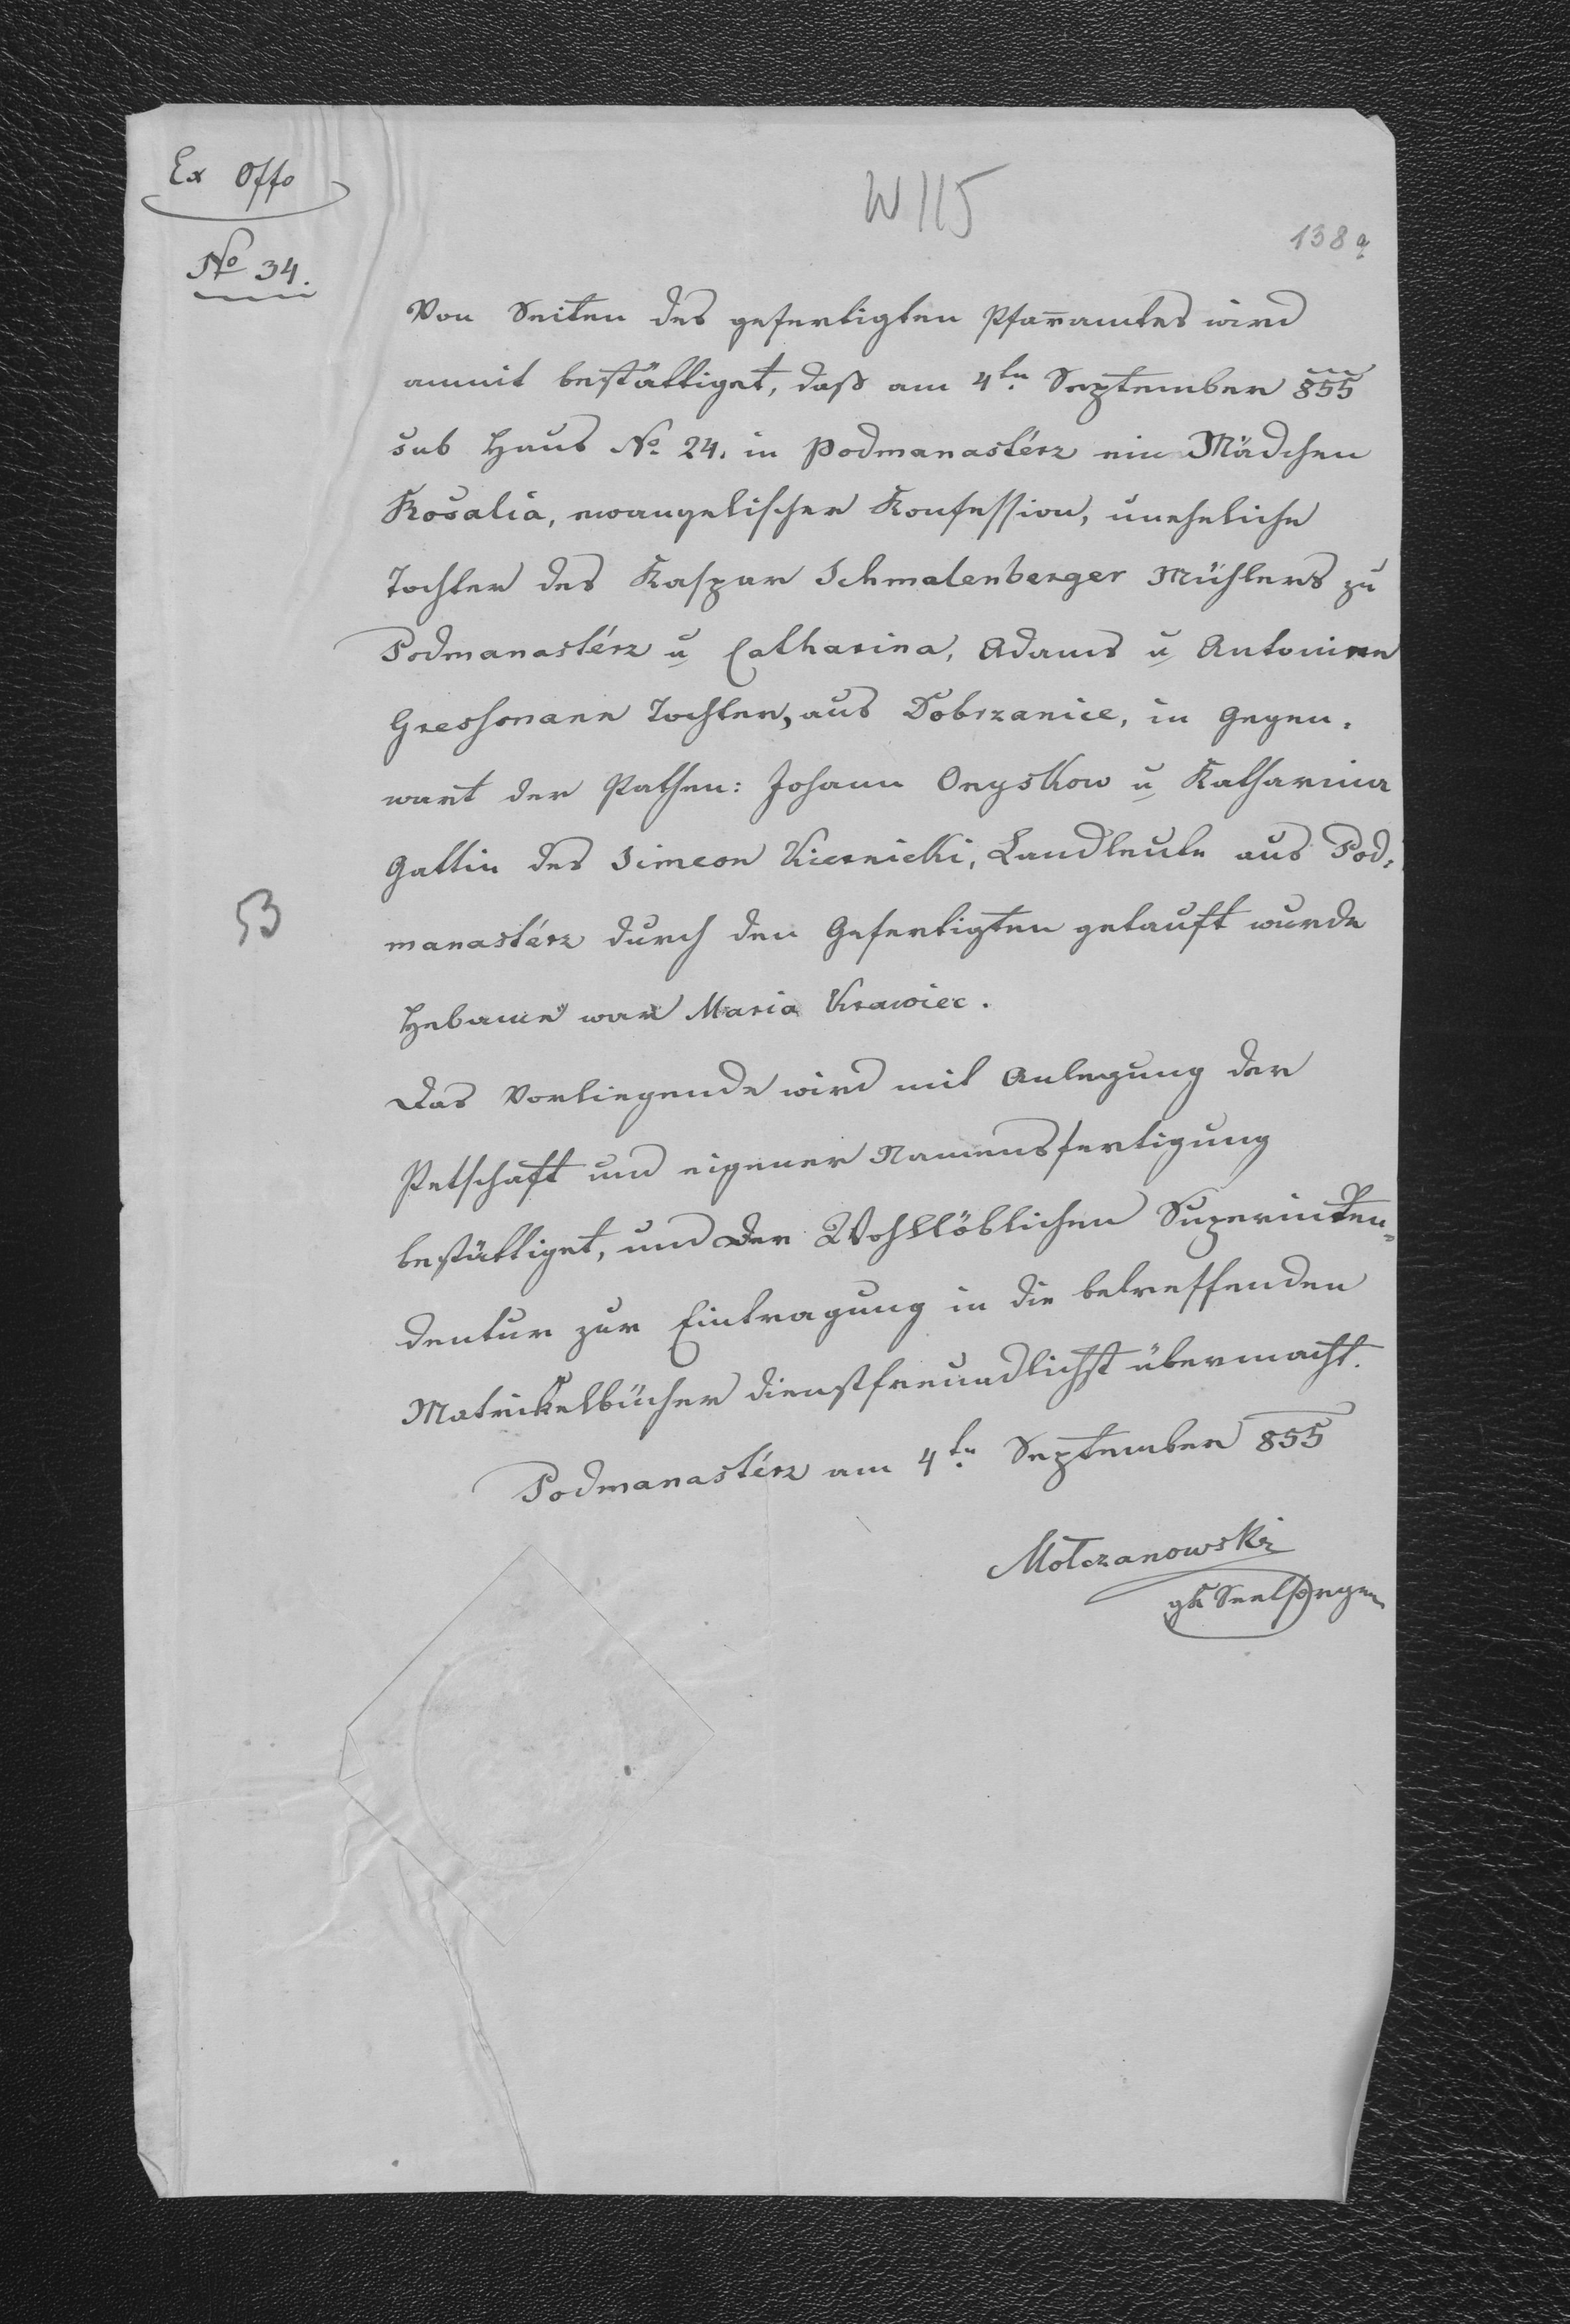 Ex Offo
W 115
138 a
No 34.
Von Seiten des gefertigten Pfarramtes wird
anmit bestättiget, daß am 4ten September 855
sub Haus No. 24. in Podmanastérz ein Mädchen
Rosalia, ewangelischer Konfession, uneheliche
Tochter des Kaspar Schmalenberger Mühlers zu
Podmanastérz u Catharina, Adams u Antoninen
Gressmann Tochter, aus Dobrzanice, in Gegen-
wart der Pathen: Johann Onyskow u Katharina
Gattin des Simeon Kiernicki, Landleute aus Pod-
53
manastérz durch den Gefertigten getauft wurde
Hebame war Maria Krawiec.
Das Vorliegende wird mit Anlegung der
Petschaft und eigener Namensfertigung
bestättiget, und der Wohllöblichen Superinten-
dentur zur Eintragung in die betreffenden
Matrikelbücher dienstfreundlichst übermacht.
Podmanastérz am 4ten September 855
Mołczanowski
gk Seelsorger